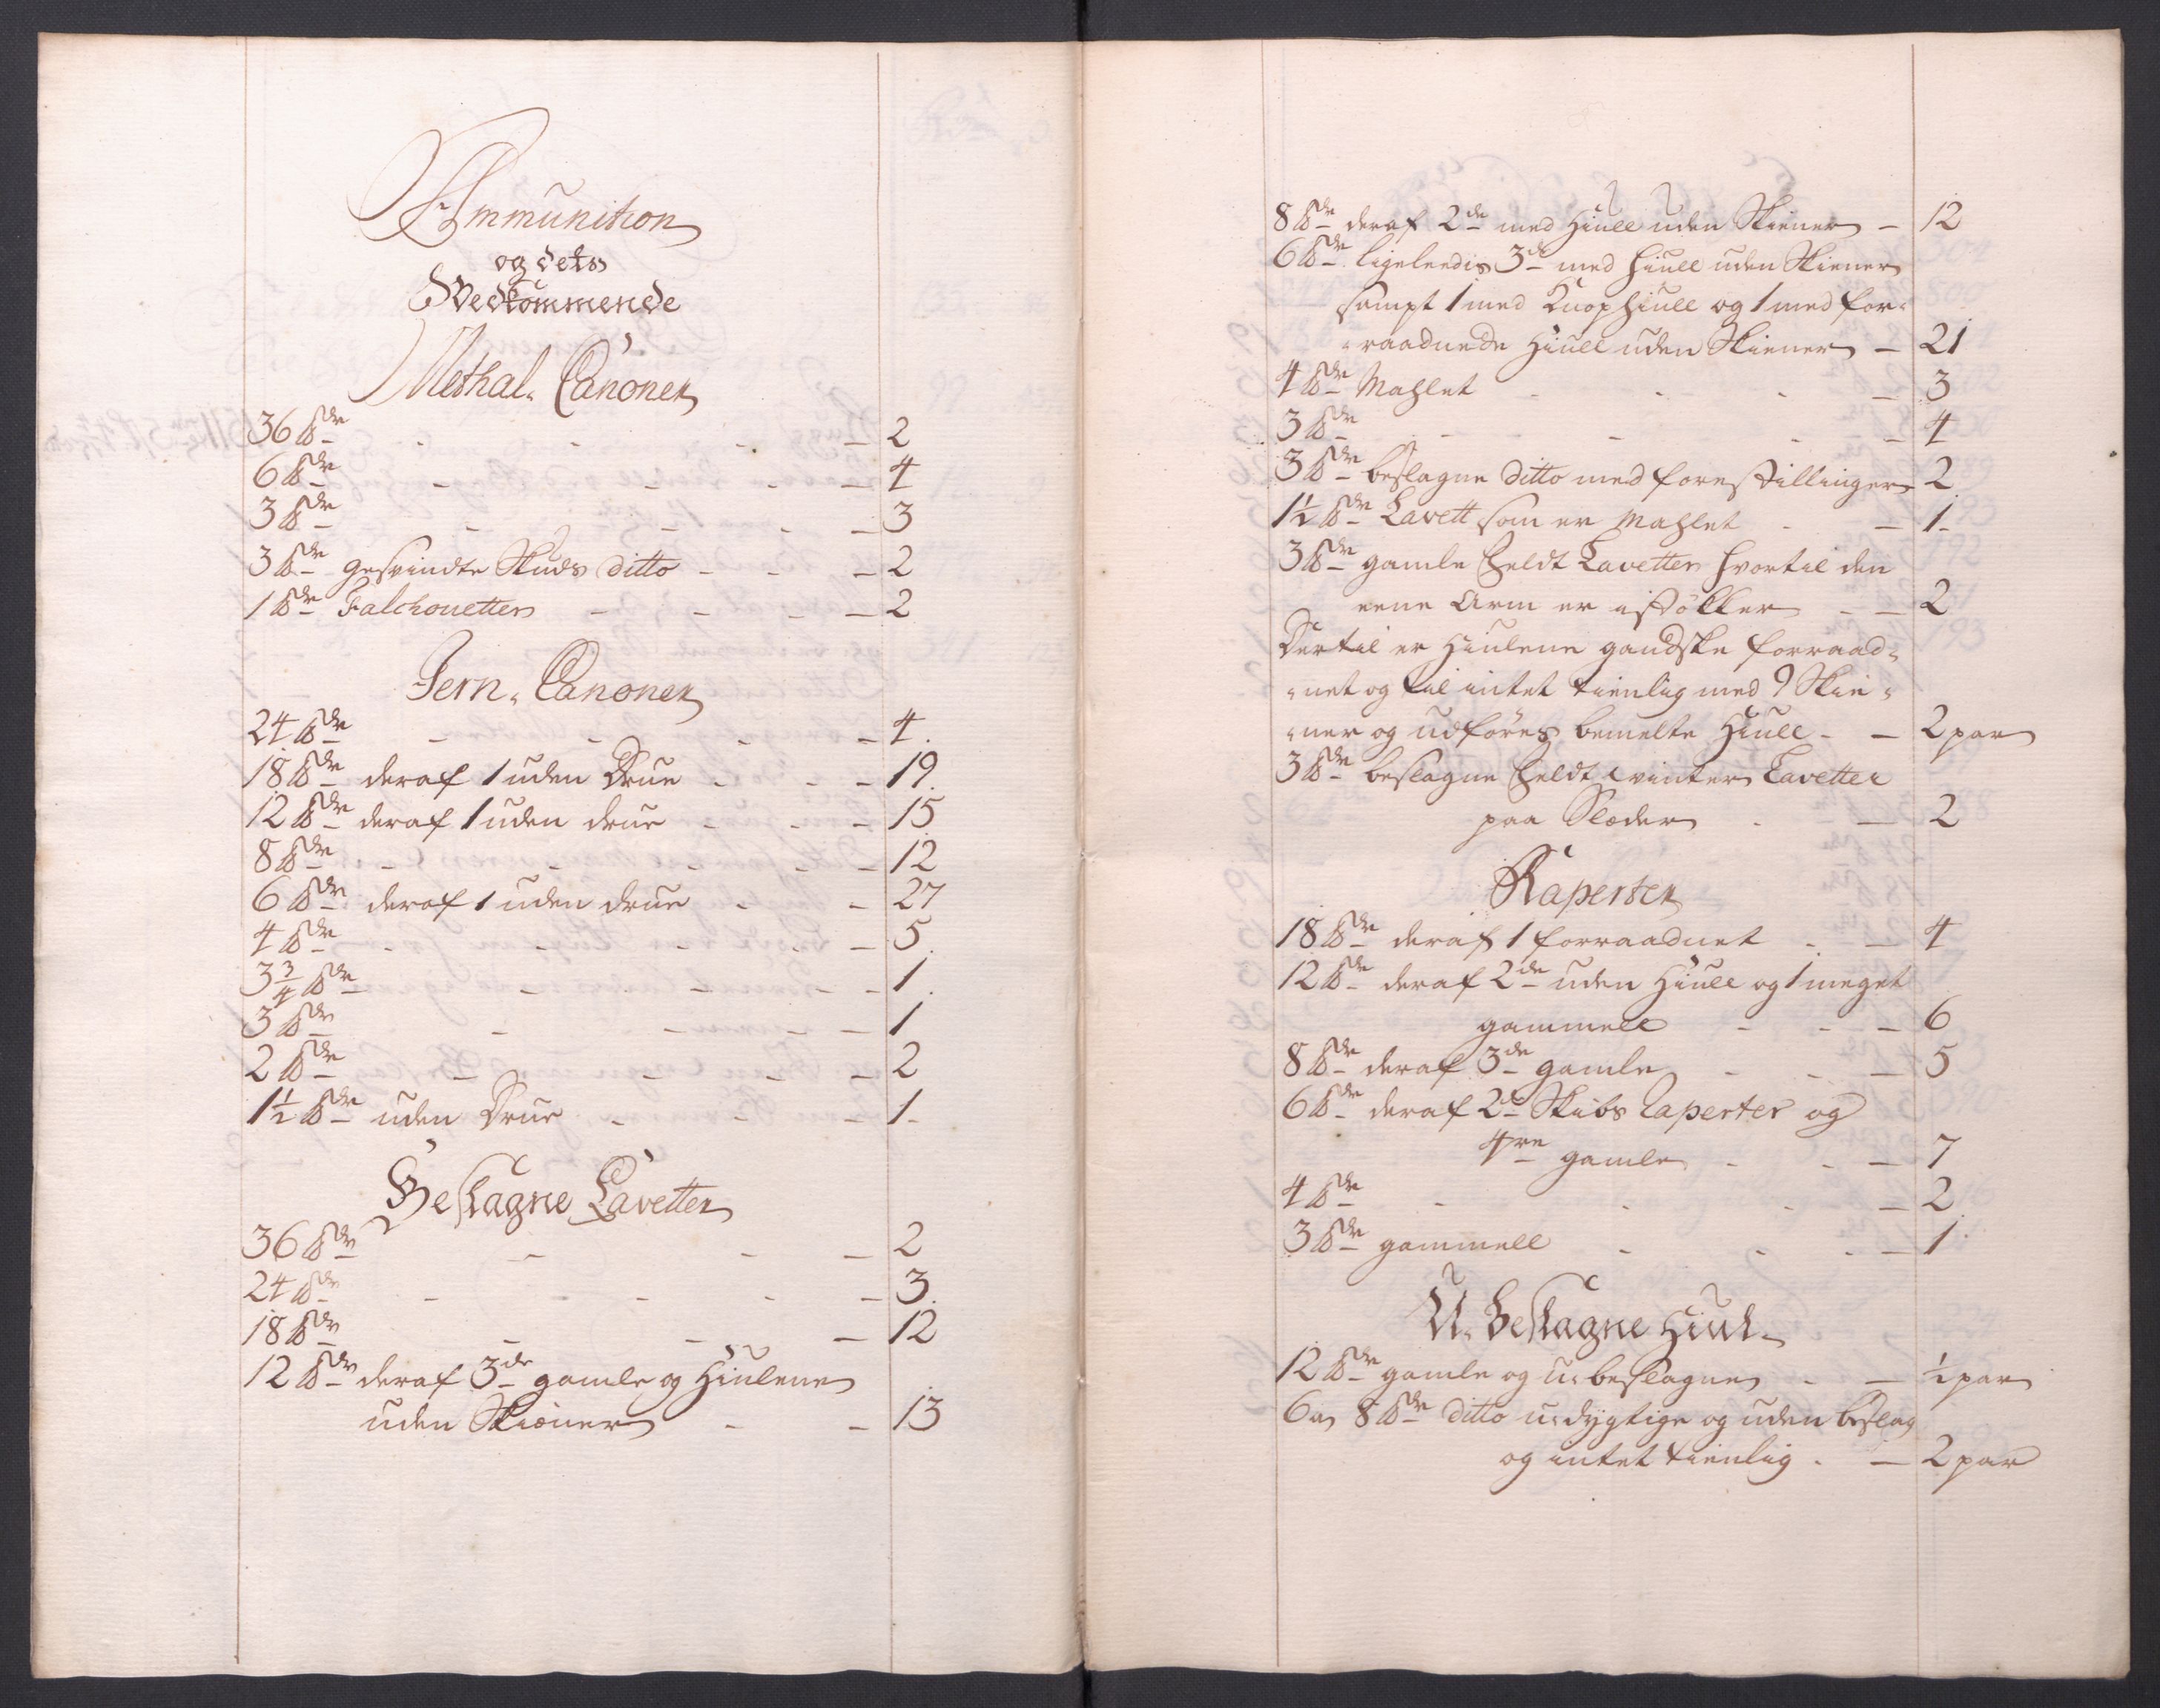 Ammunition
og dets
Vedkommende
Methal. Canoner
36 ℔dr - - - - 2
6 ℔dr - - - - 4
3 ℔dr - - - - 3
3 ℔dr gesvindte Skuds ditto - - - 2
1 ℔dr Falchonetter - - - - 2
Jern. Canoner
24 ℔dr - - - - 4.
18 ℔dr deraf 1 uden Drue - - - 19.
12 ℔dr deraf 1 uden drue - - - 15
8 ℔dr - - - - - 12
6 ℔dr deraf 1 uden drue - - 27
4 ℔dr - - - - - 5.
3 3/4 ℔dr - - - - 1.
3 ℔dr - - - - 1
2 ℔dr - - - - 2
1½ ℔dr uden Drue - - - 1.
Beslagne Lavetter
36 ℔dr - - - 2
24 ℔dr - - - - 3.
18 ℔dr - - - 12
12 ℔dr deraf 3de gamle og Hiulene
uden Skiener - - 13
8 ℔dr deraf 2de med Hiull uden Skiener - 12
6 ℔dr ligeleedis 3de med hiull uden Skiener
sampt 1 med Knophiull og 1 med for-
raadnede Hiull uden Skiener - 21
4 ℔dr Mahlet - - - - 3
3 ℔dr - - - - 4
3 ℔dr beslagne ditto med forestillinger 2
1½ ℔dr Lavett som er Mahlet - - 1.
3 ℔dr gamle Feldt Lavetter hvortil den
eene Arm er istökker - - 2
Dertil er Hiulene gandske forraad-
net og til intet tienlig med 9 Skie-
ner og udföres bemelte Hiull - - 2 par
3 ℔dr beslagne Feldt winter Lavetter
paa Slæder - - 2
Raperter
18 ℔dr deraf 1 forraadnet - - 4
12 ℔dr deraf 2de uden Hiull og 1 meget
gammell - - - 6
8 ℔dr deraf 3de gamle - - - 5
6 ℔dr deraf 2de Skibs Raperter og
4re gamle - - - 7
4 ℔dr - - - - 2
3 ℔dr gammell - - - - 1.
U-Beslagne Hiul
12 ℔dr gamle og u-beslagne - - ½ par
6 a 8 ℔dr ditto u-dygtige og uden beslag
og intet tienlig - - 2 par